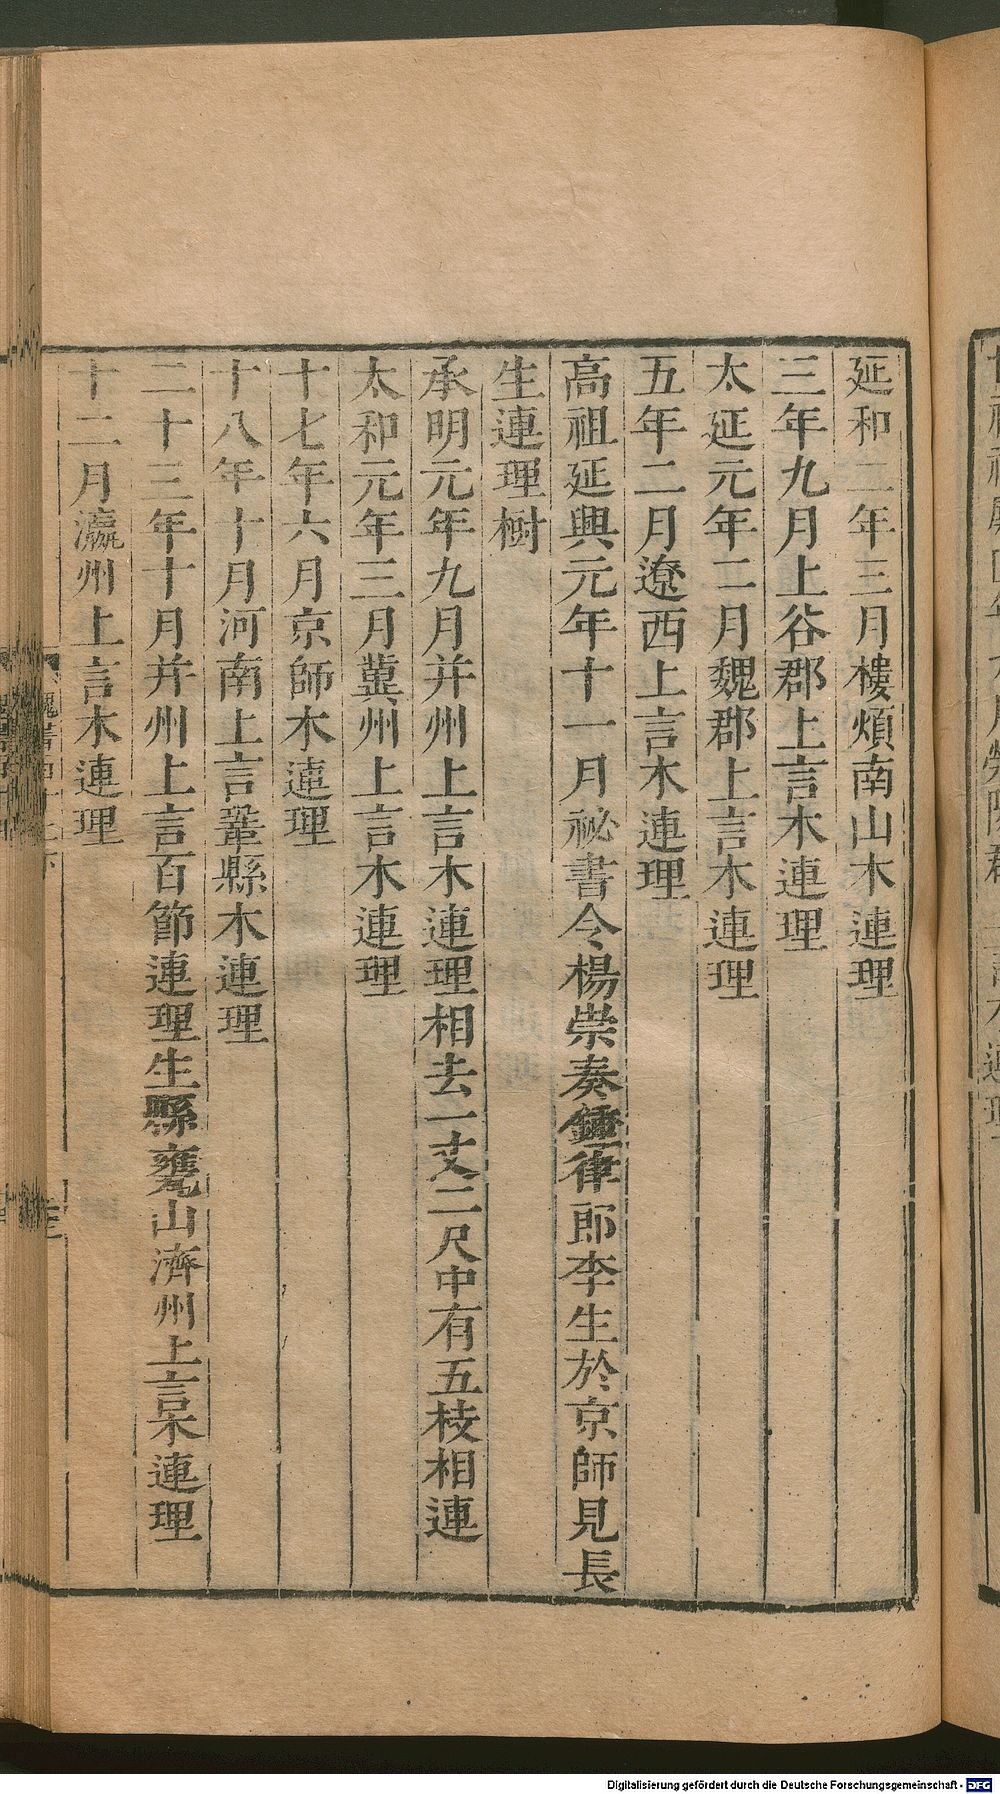 延和二年三月樓煩南山木連理
三年九月上谷郡上言木連理
太延元年二月魏郡上言木連理
五年二月遼西上言木連理
高祖延興元年十一月祕書令楊崇奏鍾律郎李生於京師見長
生連理樹
承明元年九月并州上言木連理相去一丈二尺中有五枝相連
太和元年三月冀州上言木連理
十七年六月京師木連理
十八年十月河南上言鞏縣木連理
二十三年十月并州上言百節連理生縣甕山濟州上言木連理
十二月瀛州上言木連理
Digitalisierung gefördert durch die Deutsche Forschungsgemeinschaft - DFG